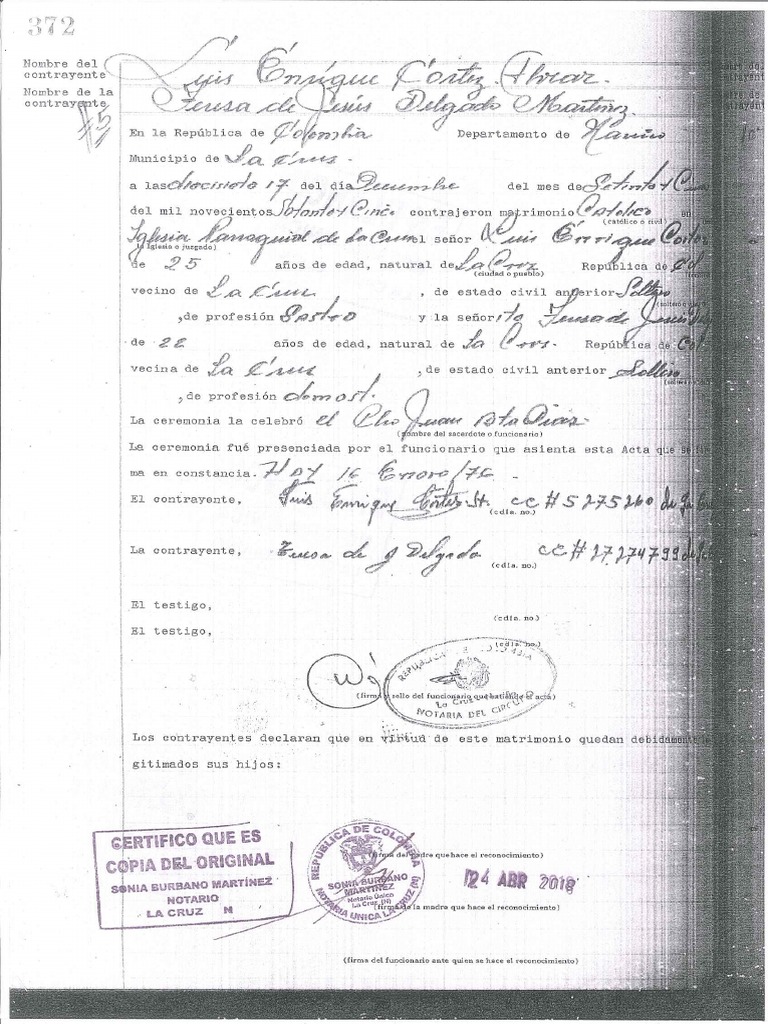 372
Nombre del contrayente
Luis Enrique Cortez
Nombre de la contrayente
Teresa de Jesús Delgado Martinez
En la República de Colombia Departamento de Nariño
Municipio de La Cruz.
a las diecisiete 17 del día Decembre del mes de Setenta y
del mil novecientos Setenta y Cinco contrajeron matrimonio Catolico en
(católico o civil)
Iglesia Parroquial de La Cruz el señor Luis Enrique Cortez
(la iglesia o juzgado)
de 25 años de edad, natural de La Cruz República de Col
(ciudad o pueblo)
vecino de La Cruz , de estado civil anterior Soltero
,de profesión y la señorita Teresa de Jesús
de 22 años de edad, natural de La Cruz. República de Col
vecina de La Cruz , de estado civil anterior Soltera
, de profesión domest.
La ceremonia la celebró el Juan Bta Diaz
(nombre del sacerdote o funcionario)
La ceremonia fué presenciada por el funcionario que asienta esta Acta que se
ma en constancia. HOY 16 Enero/76 -
El contrayente, Luis Enrique Cortez cc # 5 275260 de La Cruz
(cdla. no.)
La contrayente, Teresa de J Delgado cc # 27 274799 de
(cdla. no.)
El testigo,
(cdla. no)
El testigo,
(cdla. no.)
REPUBLICA DE COLOMBIA
La Cruz
NOTARIA DEL CIRCUITO
(firma y sello del funcionario que extiende el acta)
Los contrayentes declaran que en virtud de este matrimonio quedan debidamente
gitimados sus hijos:
CERTIFICO QUE ES
COPIA DEL ORIGINAL
SONIA BURBANO MARTÍNEZ
NOTARIO
LA CRUZ N
REPÚBLICA DE COLOMBIA
SONIA BURBANO
MARTÍNEZ
Notario Único
La Cruz (N)
NOTARIA UNICA LA CRUZ (N)
(firma del padre que hace el reconocimiento)
24 ABR 2018
(firma de la madre que hace el reconocimiento)
(firma del funcionario ante quien se hace el reconocimiento)